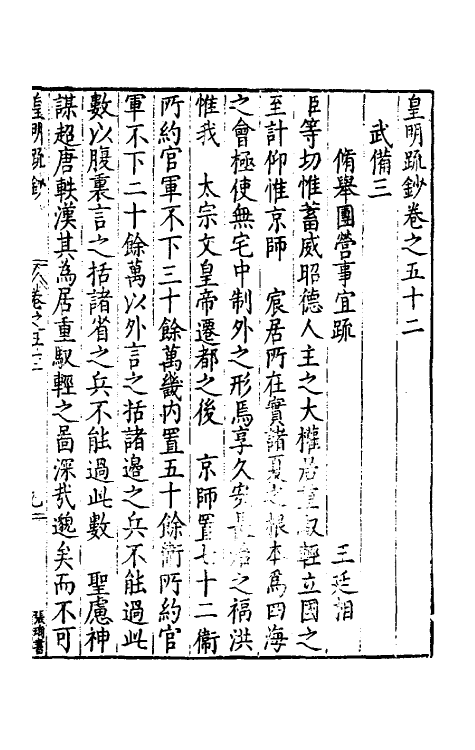 皇明疏鈔卷之五十二
武備三
脩舉團營事宜疏　王廷相
臣等切惟蓄威昭德人主之大權居重馭輕立國之
至計仰惟京師　宸居所在實諸夏之根本為四海
之會極使無宅中制外之形焉享久安長治之福洪
惟我　太宗文皇帝遷都之後　京師置七十二衛
所約官軍不下三十餘萬畿內置五十餘衛所約官
軍不下二十餘萬以外言之括諸邊之兵不能過此
數以腹裏言之括諸省之兵不能過此數　聖慮神
謀超唐軼漢其為居重馭輕之啚深哉邈矣而不可
皇明疏鈔　卷之五十二